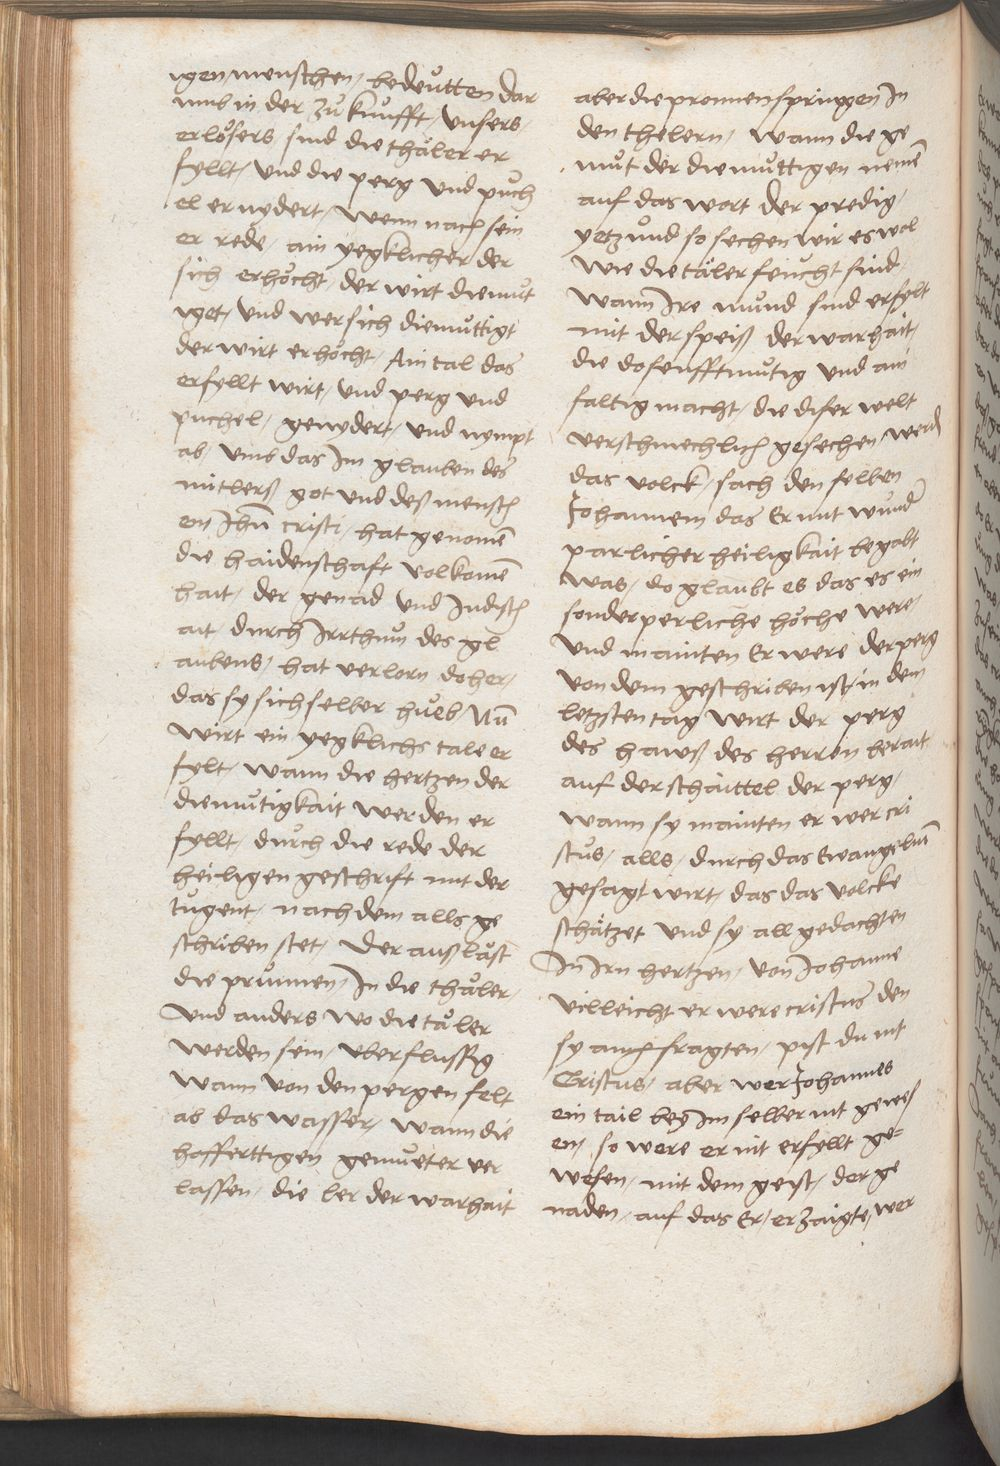 igen menschen / bedeutten dar
umb in der zu kunfft / unsers /
erlösers / sind die thäler er
fyllt / und die perg und puch
el ernydert / wenn nach sein
er rede / ain yegklicher der
sich erhöcht / der wirt diemut
iget / und wer sich diemuttigt
der wirt erhöcht / Ain tal das
erfyllt wirt / und perg und
puchel / genydert / und nympt
ab / umb das Im glauben des
mitlerß got und deß mensch
en Jhu cristi / hat genomē
die haidenschaft volkomē
hait / der genad und Judisch
ait durch Irrthum des gl
aubens / hat verlorn doher /
das sy sich selber hueb Nū
wirt ein yegklichs tale er
fylt / wann die hertzen der
diemutigkait werden er
fyllt / durch die rede der
heiligen geschrift mit der
tugent / nach dem alls ge
schriben stet / Der außläst
die prunnen / In die thäler /
Und anders wo die täler
werden sein / uberflussig
wann von den pergen felt
ab das wasser / wann die
hofferttigen gemueter ver
lassen / die ler der warhait
aber die pronnen springen In
den thelern / wann die ge
mut der diemuttigen nemē
auf das wort der predig /
yetzund so sechen wir es wol
wie die täler feucht sind
wann Ire mund sind erfylt
mit der speiß der warhait /
die do senfftmutig und ain
faltig macht / die diser welt
verschmechlich gesechen werdē
das volck / sach den selben
Johannem das Er mit wund
parlicher heiligkait begabt
was / do glaubt es das es ein
sonderperliche höche were /
Und mainten Er were der perg
von dem geschriben ist / in dem
letzsten tag wirt der perg
des hawß des herren berait
auf der schaittel der perg /
wann sy mainten er wer cri
stus / alls / durch das Ewangeliū
gesagt wirt / das das volcke
schätzet und sy all gedachten
In Irn hertzen / von Johanne
villeicht er were cristus den
sy auch fragten / pist du nit
Cristus / aber wer Johannes
ein tail bey Im selber nit gewes
en / so were er nit erfyllt ge=
wesen / mit dem geist / der ge
naden / auf das Er / erzaigte / wer